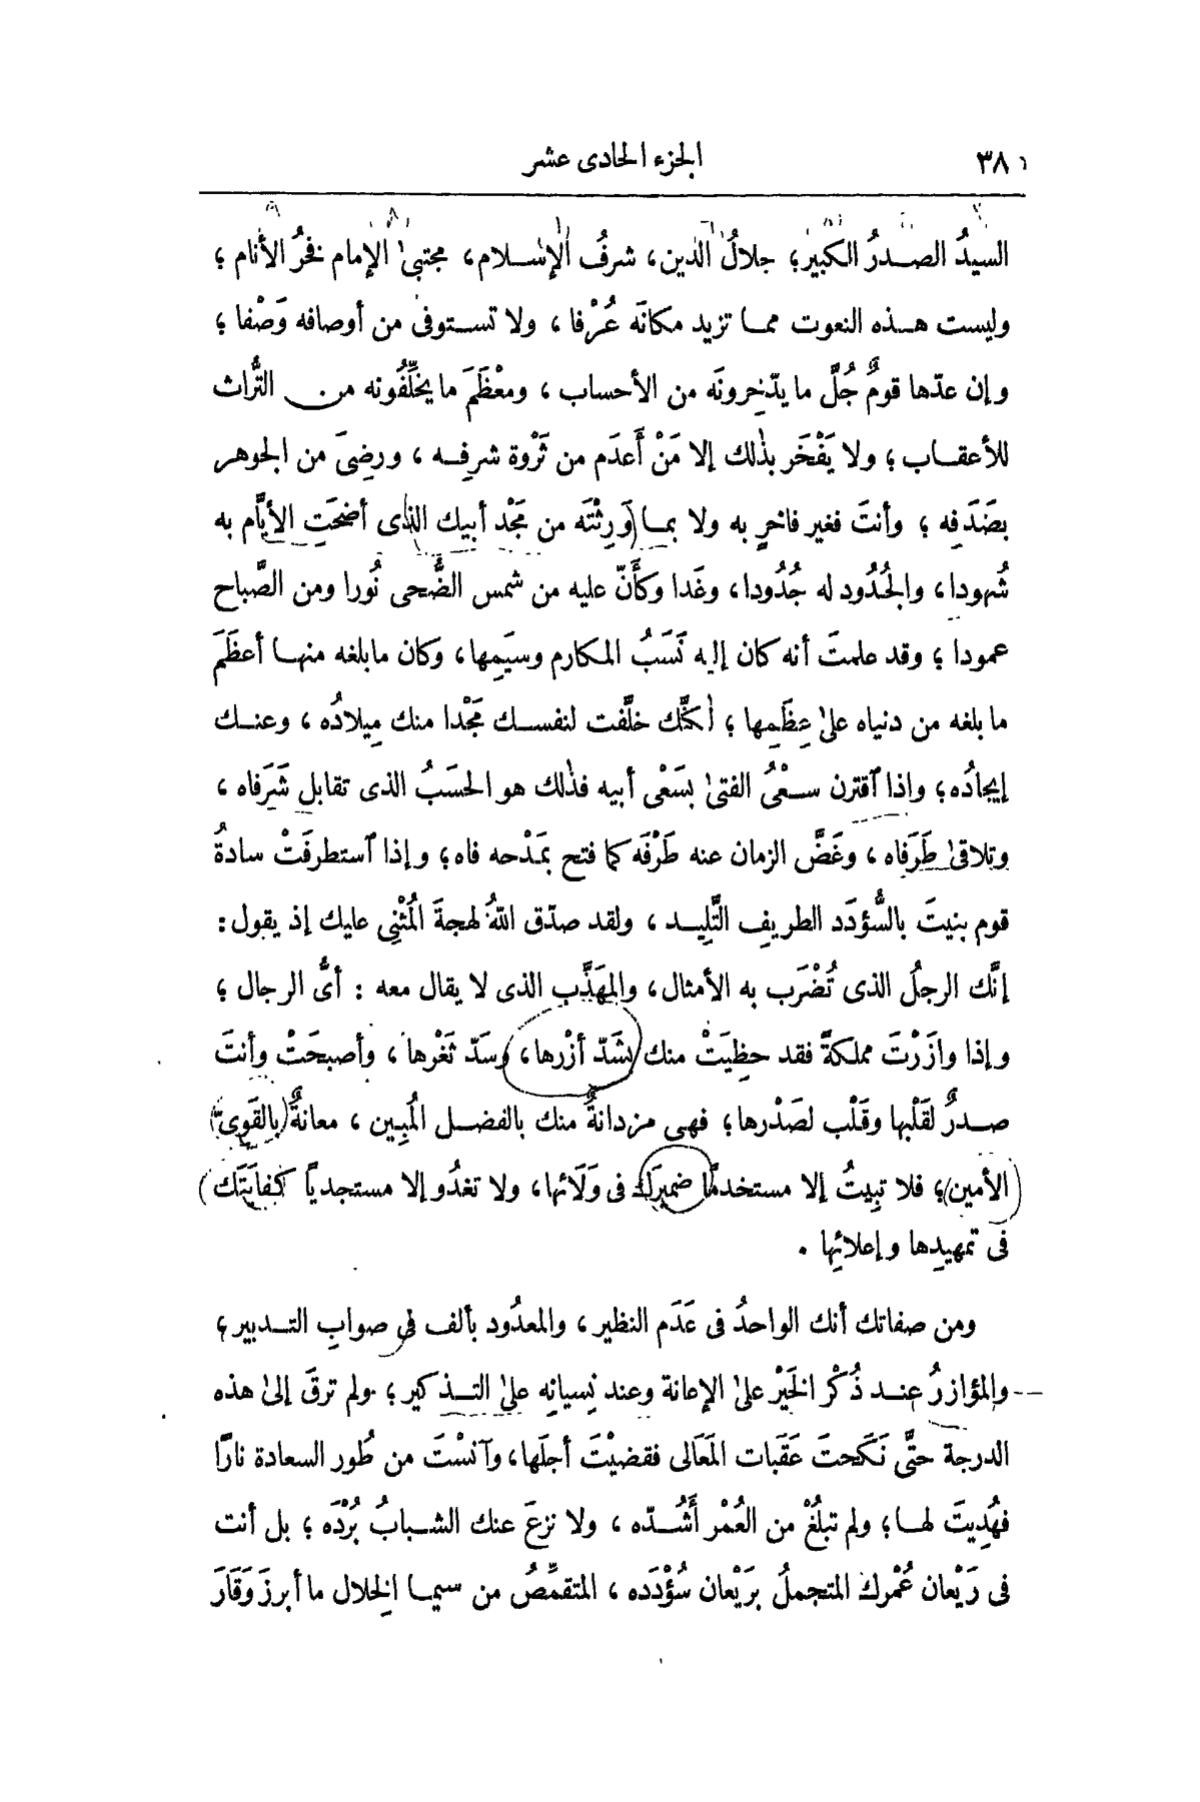 ٣٨ الجزء الحادى عشر
السيدُ الصدرُ الكبير؛ جلالُ الدين، شرفُ الإسلام، مجتبىٰ الإمام فخرُ الأنام ؛
وليست هذه النعوت مما تزيد مكانَه عُرْفا ، ولا تستوفىٰ من أوصافه وَصْفا ؛
وإن عدّها قومٌ جُلَّ ما يدّخِرونَه من الأحساب ، ومعْظَمَ ما يخلِّفُونه من التُّراث
للأعقاب ؛ ولا يَفْخَر بذٰلك إلا مَنْ أَعدَم من ثَرْوة شرفِه ، ورضِىَ من الجوهر
بصَدَفِه ؛ وأنتَ فغير فاخرٍ به ولا بما وَرِثْتَه من مَجْد أبيك الذى أضحَتِ الأيَّام به
شُهودا، والجُدُود له جُدُودا، وغَدا وكأَنّ عليه من شمس الضُّحى نُورا ومن الصَّباح
عمودا ؛ وقد علمتَ أنه كان إليه نَسَبُ المكارم وسيَمِها، وكان مابلغه منها أعظَمَ
ما بلغه من دنياه علىٰ عِظَمِها ؛ لٰكنَّك خلَّفت لنفسك مَجْدا منك مِيلادُه ، وعنك
إيجادُه؛ وإذا ٱقترن سعْىُ الفتىٰ بسَعْى أبيه فذٰلك هو الحسَبُ الذى تقابل شَرَفاه ،
وتلاقىٰ طَرَفاه ، وغَضَّ الزمان عنه طَرْفَه كما فتح بمَدْحه فاه؛ وإذا ٱستطرفَتْ سادةُ
قوم بنيتَ بالسُّؤدَد الطريفِ التَّلِيد ، ولقد صدّق اللهُ لهجةَ المُثْنِى عليك إذ يقول :
إنَّك الرجلُ الذى تُضْرَب به الأمثال، والمهَذَّب الذى لا يقال معه : أىُّ الرجال ؛
وإذا وازَرْتَ مملكةً فقد حظِيَتْ منك بشَدّ أزْرها، وسَدّ ثَغْرها ، وأصبحَتْ وأنتَ
صدرٌ لقَلْبها وقَلْب لصَدْرها؛ فهى مزدانةٌ منك بالفضل المُبِين ، معانةٌ (بالقَوىّ
الأمين)؛ فلا تبِيتُ إلا مستخدمًا ضميرَك فى وَلَائها، ولا تغدُو إلا مستجديًا كفايَتَك
فى تمهيدِها وإعلائِها .
ومن صفاتك أنك الواحدُ فى عَدَم النظير ، والمعدُود بألف فى صوابِ التدبير ؛
والمؤازرُ عند ذُكْر الخَيْر علىٰ الإعانة وعند نِسيانِه علىٰ التذكير ؛ ولم ترقَ إلىٰ هذه
الدرجة حتَّى نَكَحتَ عَقَبات المَعَالى فقضيْتَ أجلَها، وآنسْتَ من طُور السعادة نارًا
فهُدِيتَ لها؛ ولم تبلُغْ من العُمْر أَشُدّه ، ولا نزعَ عنك الشبابُ بُرْدَه ؛ بل أنت
فى رَيْعان عُمْرك المتجملُ برَيْعان سُؤْدَده ، المتقمِّصُ من سيما الخِلال ما أبرزَ وَقَارَ